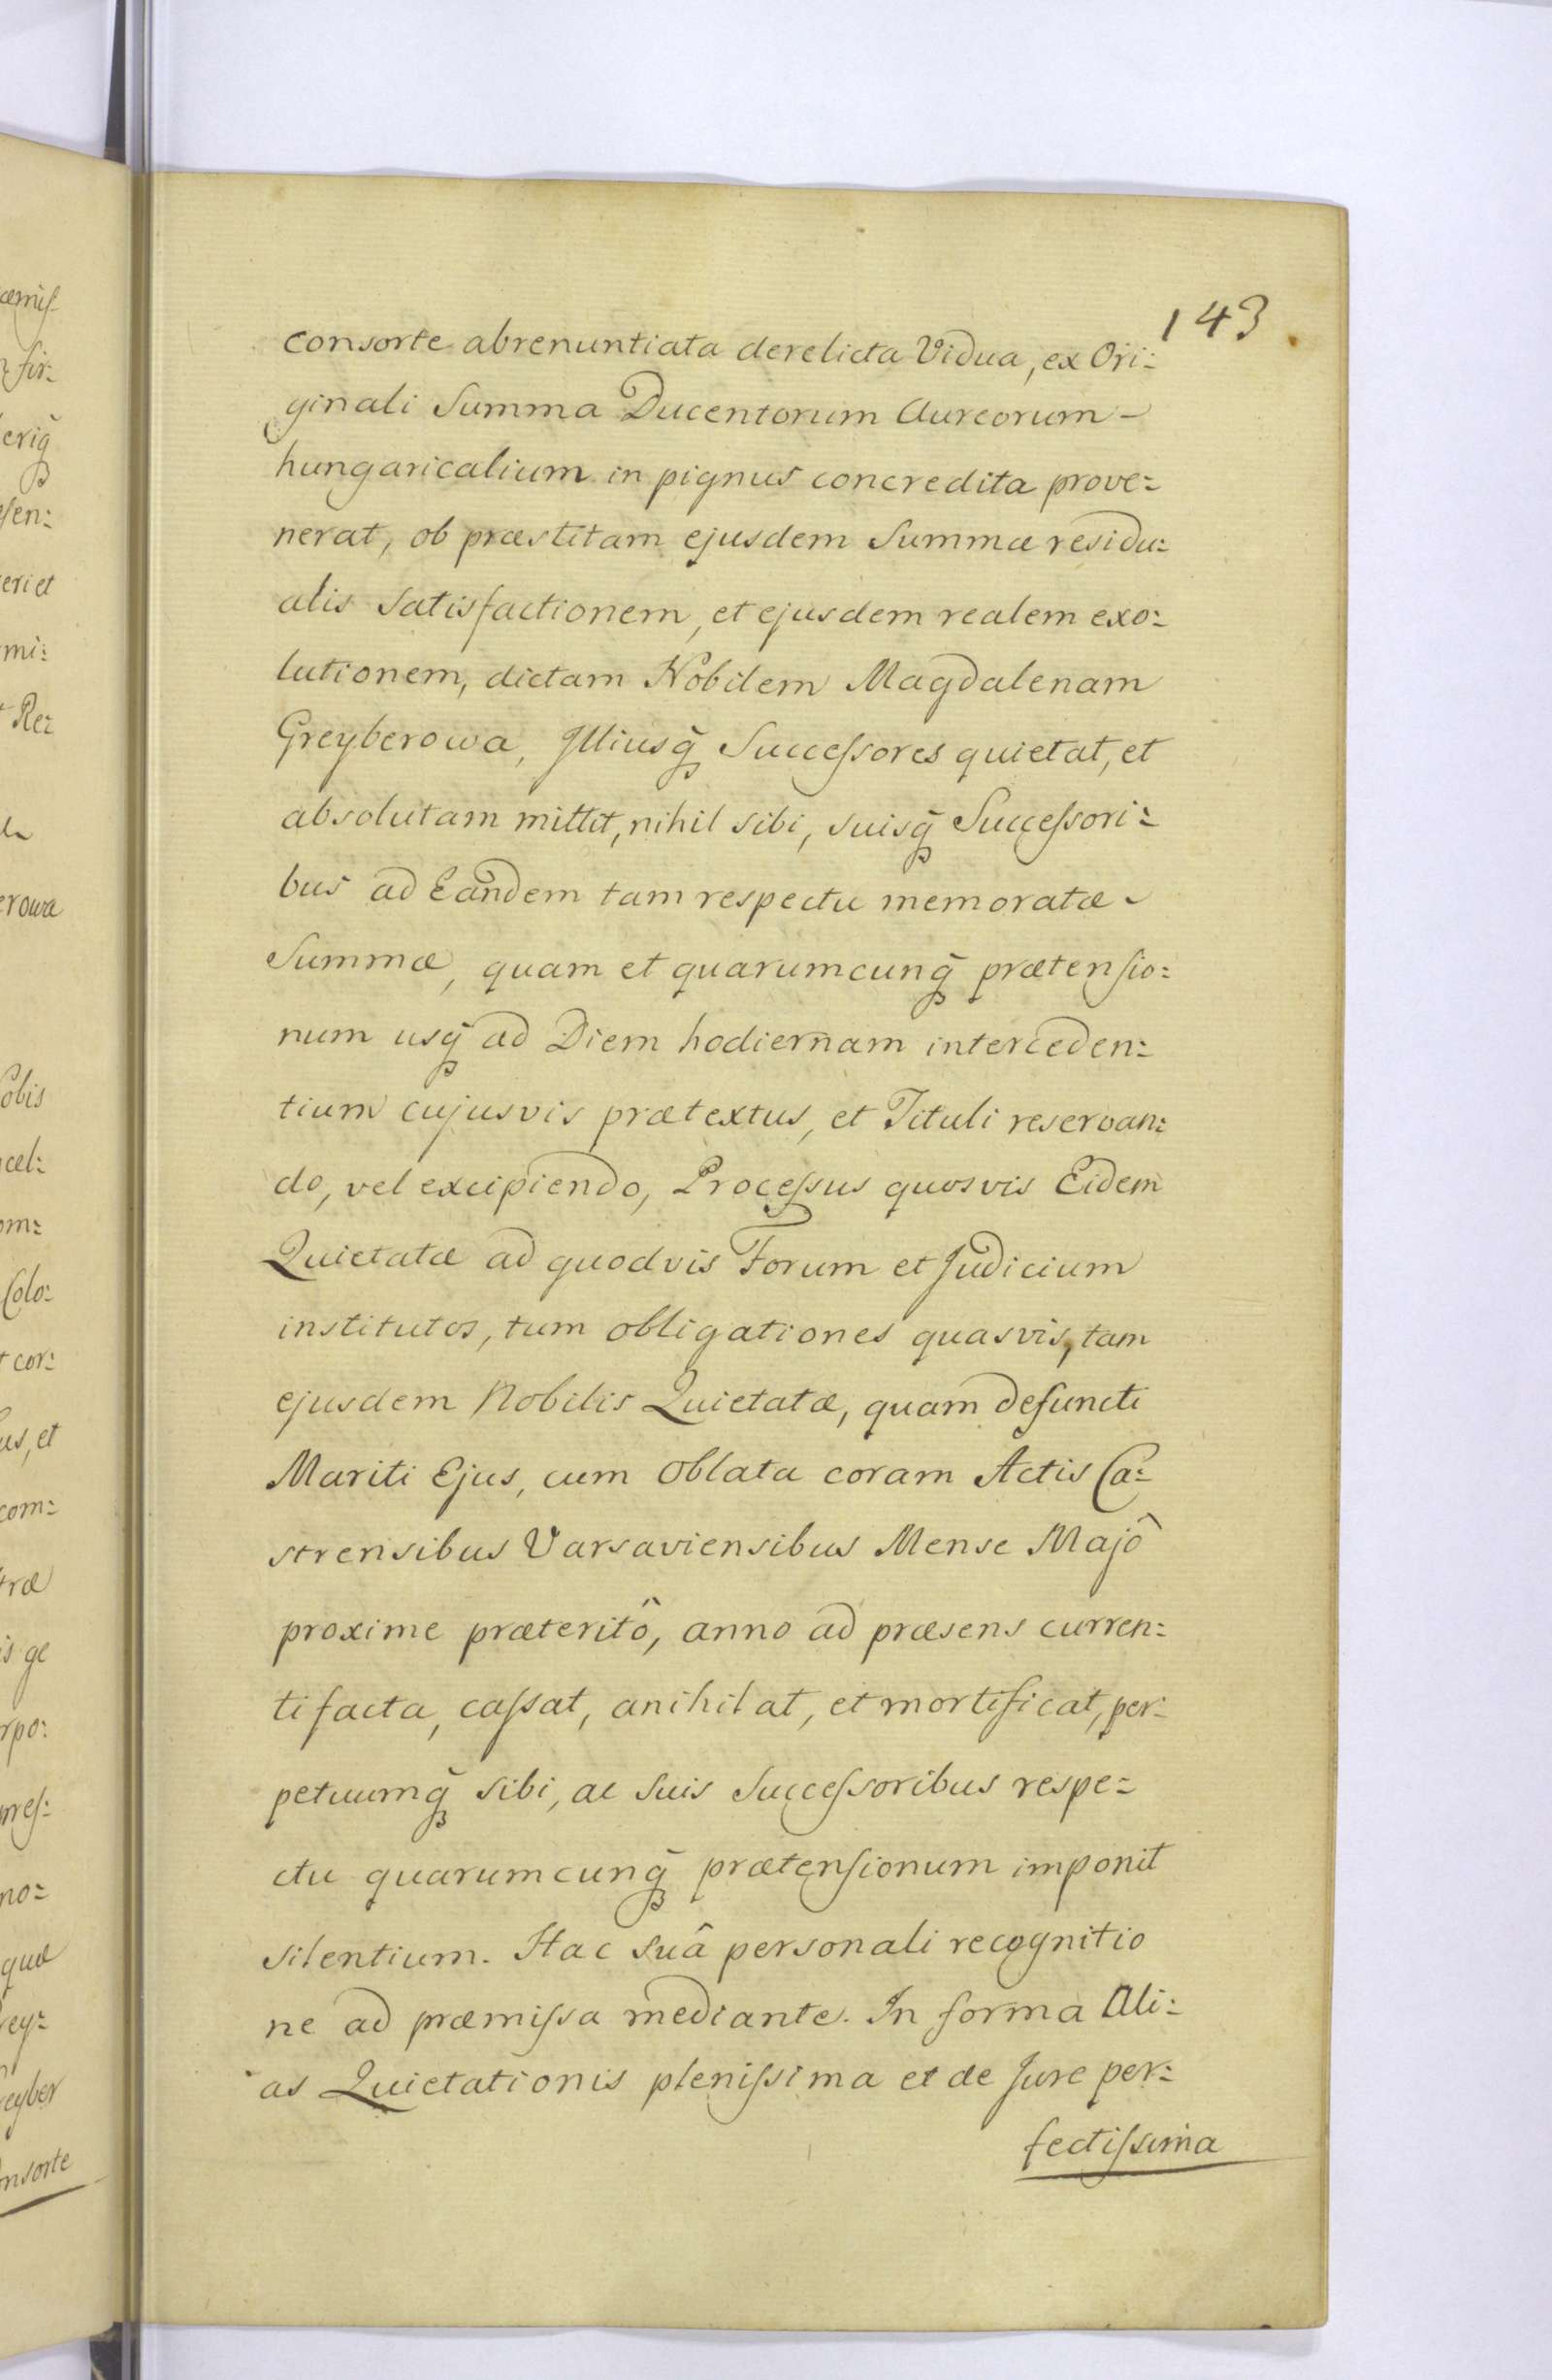 143
consorte abrenuntiata derelicta Vidua, ex Ori:
ginali Summa Ducentorum Aureorum -
hungaricalium in pignus concredita prove:
nerat, ob præstitam ejusdem Summæ residu:
alis satisfactionem, et ejusdem realem exo:
lutionem, dictam Nobilem Magdalenam
Greyberowa, Illiusq̃ Succeſsores quietat, et
absolutam mittit, nihil sibi, suisq̃ Succeſsori:
bus ad Eandem tam respectu memoratæ -
Summæ, quam et quarumcunq̃ prætenſio:
num usq̃ ad Diem hodiernam interceden:
tium cujusvis prætextus, et Tituli reservan:
do, vel excipiendo, Proceſsus quosvis Eidem
Quietatæ ad quodvis Forum et Judicium
institutos, tum obligationes quasvis, tam
ejusdem Nobilis Quietatæ, quam defuncti
Mariti Ejus, cum Oblata coram Actis Ca:
strensibus Varsaviensibus Mense Majô
proxime præteritô, anno ad præsens curren:
ti facta, caſsat, anihilat, et mortificat, per:
petuumq̃ sibi, ac suis Succeſsoribus respe:
ctu quarumcunq̃ prætenſionum imponit
silentium. Hac suâ personali recognitio
ne ad præmiſsa mediante. In forma Ali:
as Quietationis pleniſsima et de Jure per:
fectiſsima
æmiſ-
fir:
eriq̃
ſen:
eri et
mi:
Re:
erowa
cel:
om:
Colo:
cor:
us, et
com:
træ
is ge
rpo:
no:
quæ
rey:
reyber
onsorte